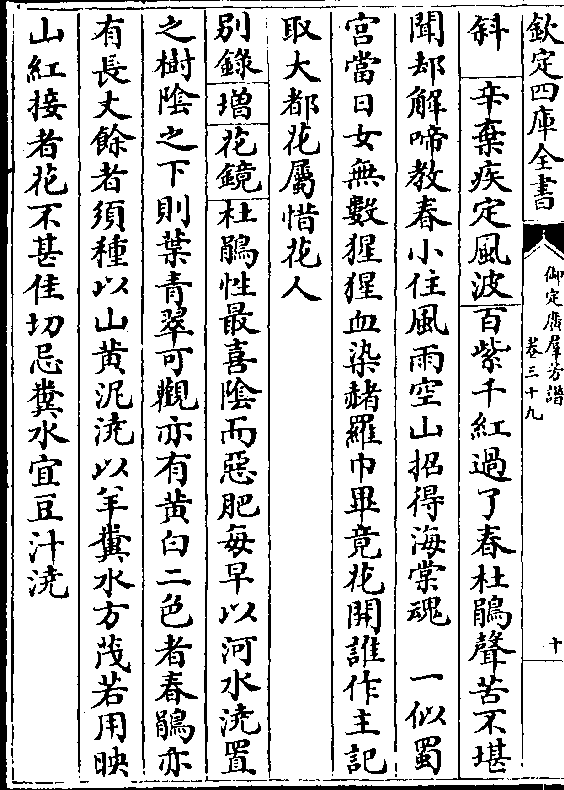 欽定四庫全書
御定廣羣芳譜
卷三十九
十
斜　辛棄疾定風波百紫千紅過了春杜鵑聲苦不堪
聞却解啼教春小住風雨空山招得海棠魂　一似蜀
宫當日女無數猩猩血染赭羅巾畢竟花開誰作主記
取大都花屬惜花人
別錄增花鏡杜鵑性最喜陰而惡肥每早以河水澆置
之樹陰之下則葉青翠可觀亦有黄白二色者春鵑亦
有長丈餘者須種以山黄泥澆以羊糞水方茂若用映
山紅接者花不甚佳切忌糞水宜豆汁澆